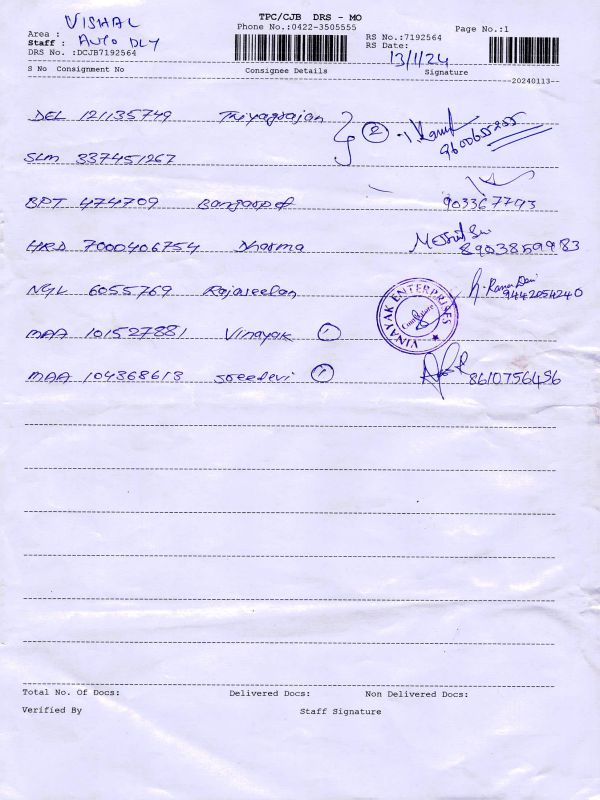 VISHAL
TPC/CJB DRS - MO
Phone No.:0422-3505555
Page No.:1
Area :
Staff : AUTO DLY
RS No.:7192564
RS Date: 13/1/24
DRS No. :DCJB7192564
S No Consignment No Consignee Details Signature
--20240113--
DEL 121135749 Thiyagrajan
2
9600655255
SLM 337451267
BPT 474709
9033677793
HRD 7000406754 Dharma
8903859983
NYL 6055769 Rajaseelan
9442254240
VINAYAK ENTERPRISES
Coimbatore
MAA 101527881 Vinayak 1
MAA 104368613 Sreedevi 1
8610756496
Total No. Of Docs: Delivered Docs: Non Delivered Docs:
Verified By Staff Signature